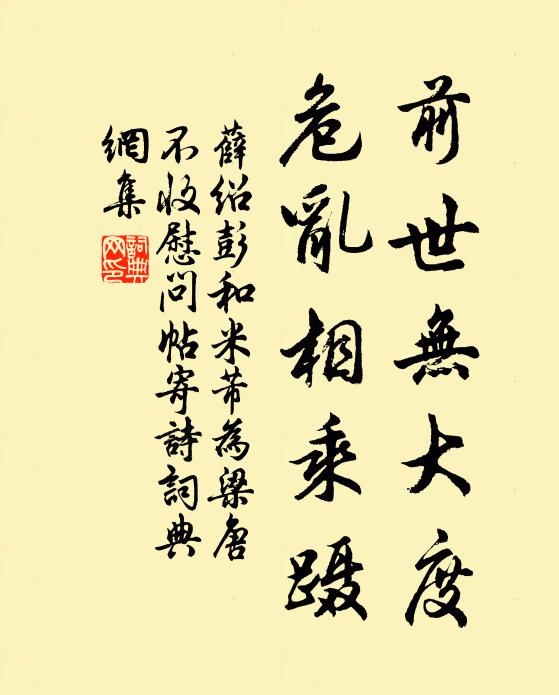 前世無大度
危亂相乘蹑
薛紹彭和米芾為梁唐
不收慰問帖寄詩詞典
網集
詞典網印